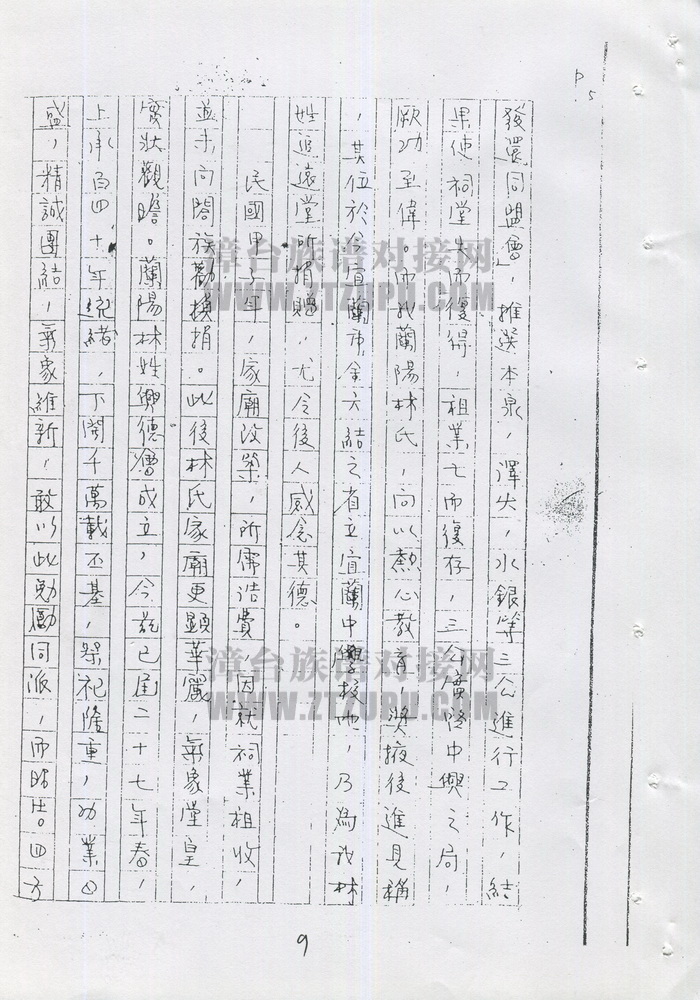 P.5
發還同盟會」，推選本泉，澤火，水銀等三公進行工作，結
果使祠堂失而復得，租業亡而復存，三公廣啓中興之局，
厥功至偉。而我蘭陽林氏，向以熱心教育，獎掖後進見稱
，其位於今宜蘭市金六結之省立宜蘭中學校地，乃為我林
姓追遠堂所捐贈，尤令後人感念其德。
民國甲子年，家廟改築，所需浩費，因就祠業租收，
並未向闔族勸捐。此後林氏家廟更顯華麗，氣象堂皇，
實壯觀瞻。蘭陽林姓興德會成立，今茲已屆二十七年春，
上承百四十年統緒，下開千萬載丕基，祭祀隆重，功業日
盛，精誠團結，氣象維新，敢以此勉勵同派，而昭告四方
9
漳台族谱对接网
WWW.ZTZUPU.COM
漳台族谱对接网
WWW.ZTZUPU.COM